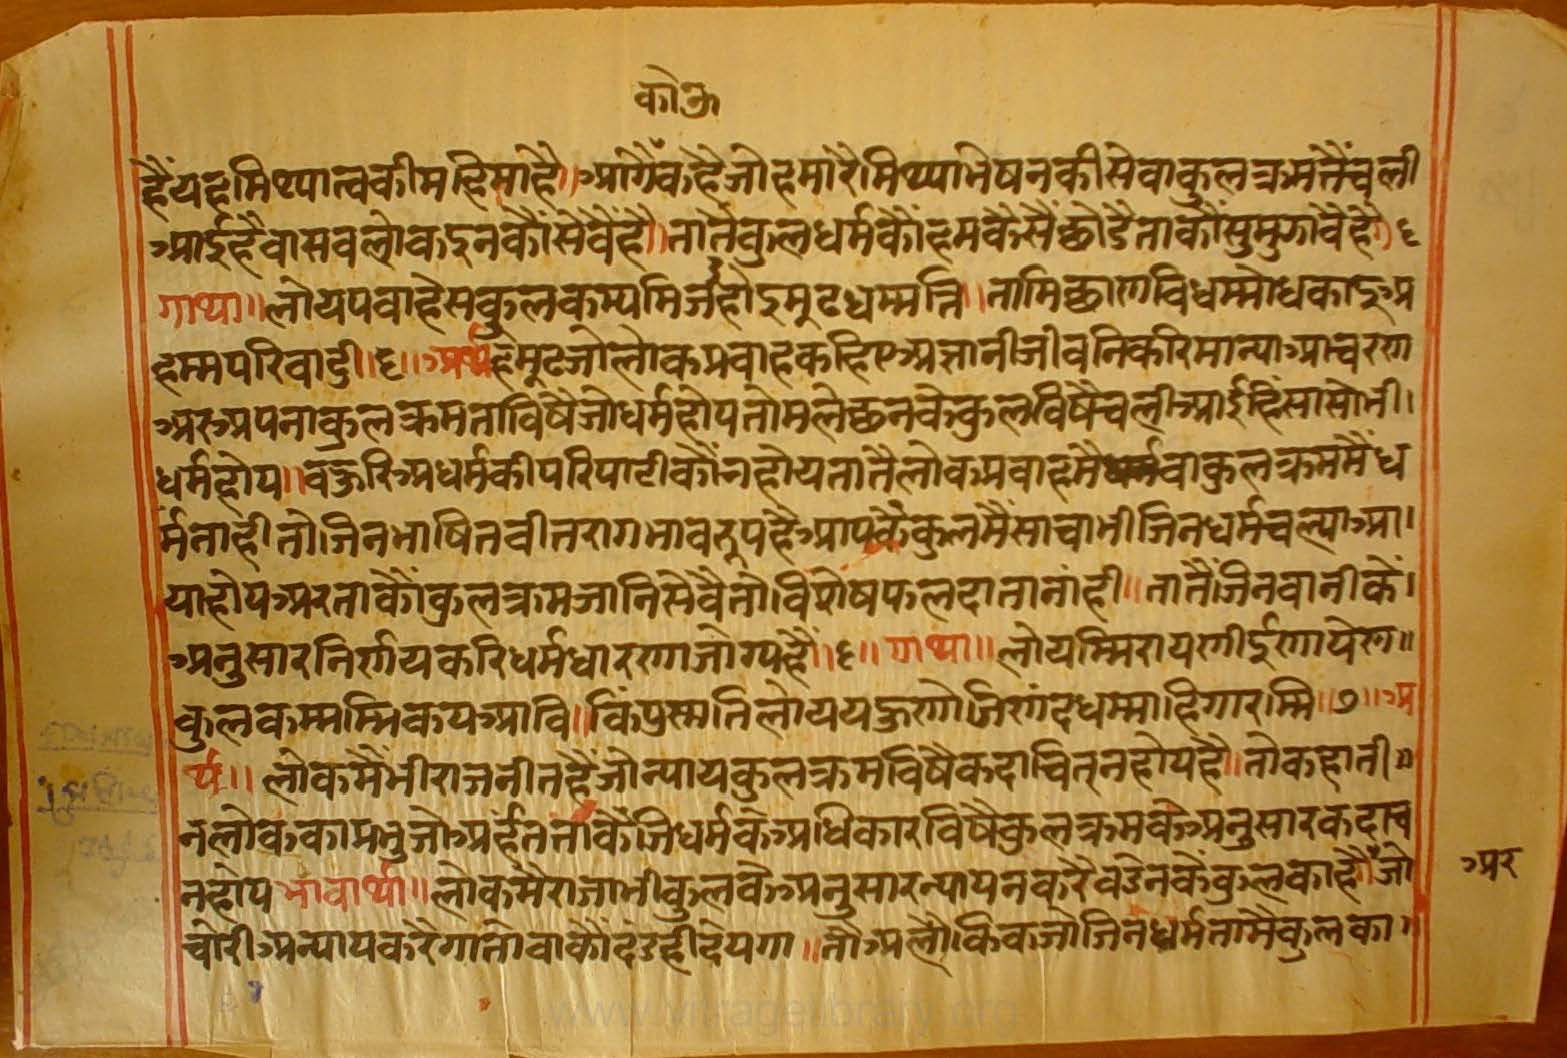 कोऊ
हैं यह मिथ्यात्व की महिमा है॥ आगैं कहै जो हमारै मिथ्याभेषन की सेवा कुलक्रम तैं चली
आई है वा सब लोक इनकौं सेवैं हैं॥ तातैं कुलधर्म कौं हम कैसैं छोडै ताकौं सुमुझावै है॥६
गाथा॥ लोयपवाहे सकुलकम्पमि जइ होइ मुढ धम्मन्नि॥ ता मिच्छाण वि धम्मो धकाइ अ
हम्म परिवाडी॥६॥ अर्थ हे मुढ जो लोकप्रवाह कहिए अज्ञानी जीवनि करि मान्या आचरण
अरु अपना कुलक्रम ता विषै जो धर्म होय तो मलेछन के कुल विषै चली आई हिंसा सो भी।
धर्म होय॥ बऊरि अधर्म की परिपाटी कौंन होय तातै लोकप्रवाह मै वा कुलक्रम मैं ध
र्म नाही तो जिनभाषित वीतराग भाव रुप है आपकैं कुल मैं साचा भी जिनधर्म चल्या आ।
या होय अर ताकौं कुलक्रम जानि सेवै तो विशेष फलदाता नांही॥ तातैं जिनवानी कें।
अनुसार निर्णय करि धर्म धारणा जोग्य है॥६॥ गाथा॥ लोयम्मि रायणीई णायेण॥
कुलकम्मम्मि कय आवि॥ किं पुस्म तिलोय यऊणो जिणंद धम्माहिगारम्मि॥७॥ अ
र्थ॥ लोक मैं भी राजनीत हैं जो न्याय कुलक्रम विषै कदाचित न होय है॥ तो कहा ती॥
न लोक का प्रभु जो अर्हंत ताकें जिधर्म के अधिकार विषै कुलक्रम के अनुसार कदाच
न होय भावार्थ॥ लोक मै राजा भी कुल कै अनुसार न्याय न करै वडेन कें कुल का है जो
अर
चोरी अन्याय करैगा तो वाकौं दंड ही देयगा॥ तौ अलौकिक जो जिनधर्म तामै कुल का॥